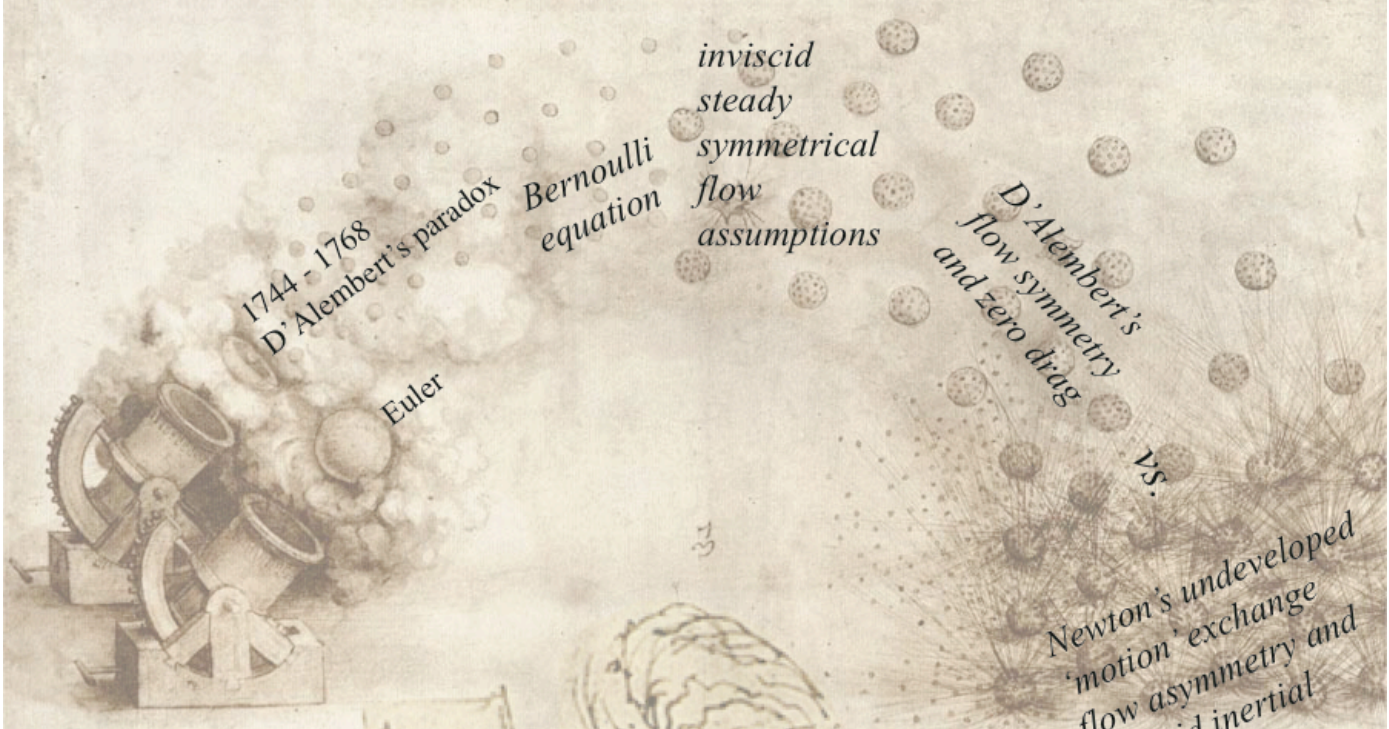 1744 - 1768
D'Alembert's paradox
Euler
Bernoulli
equation
inviscid
steady
symmetrical
flow
assumptions
D'Alembert's
flow symmetry
and zero drag
vs.
Newton's undeveloped
'motion' exchange
flow asymmetry and
inertial